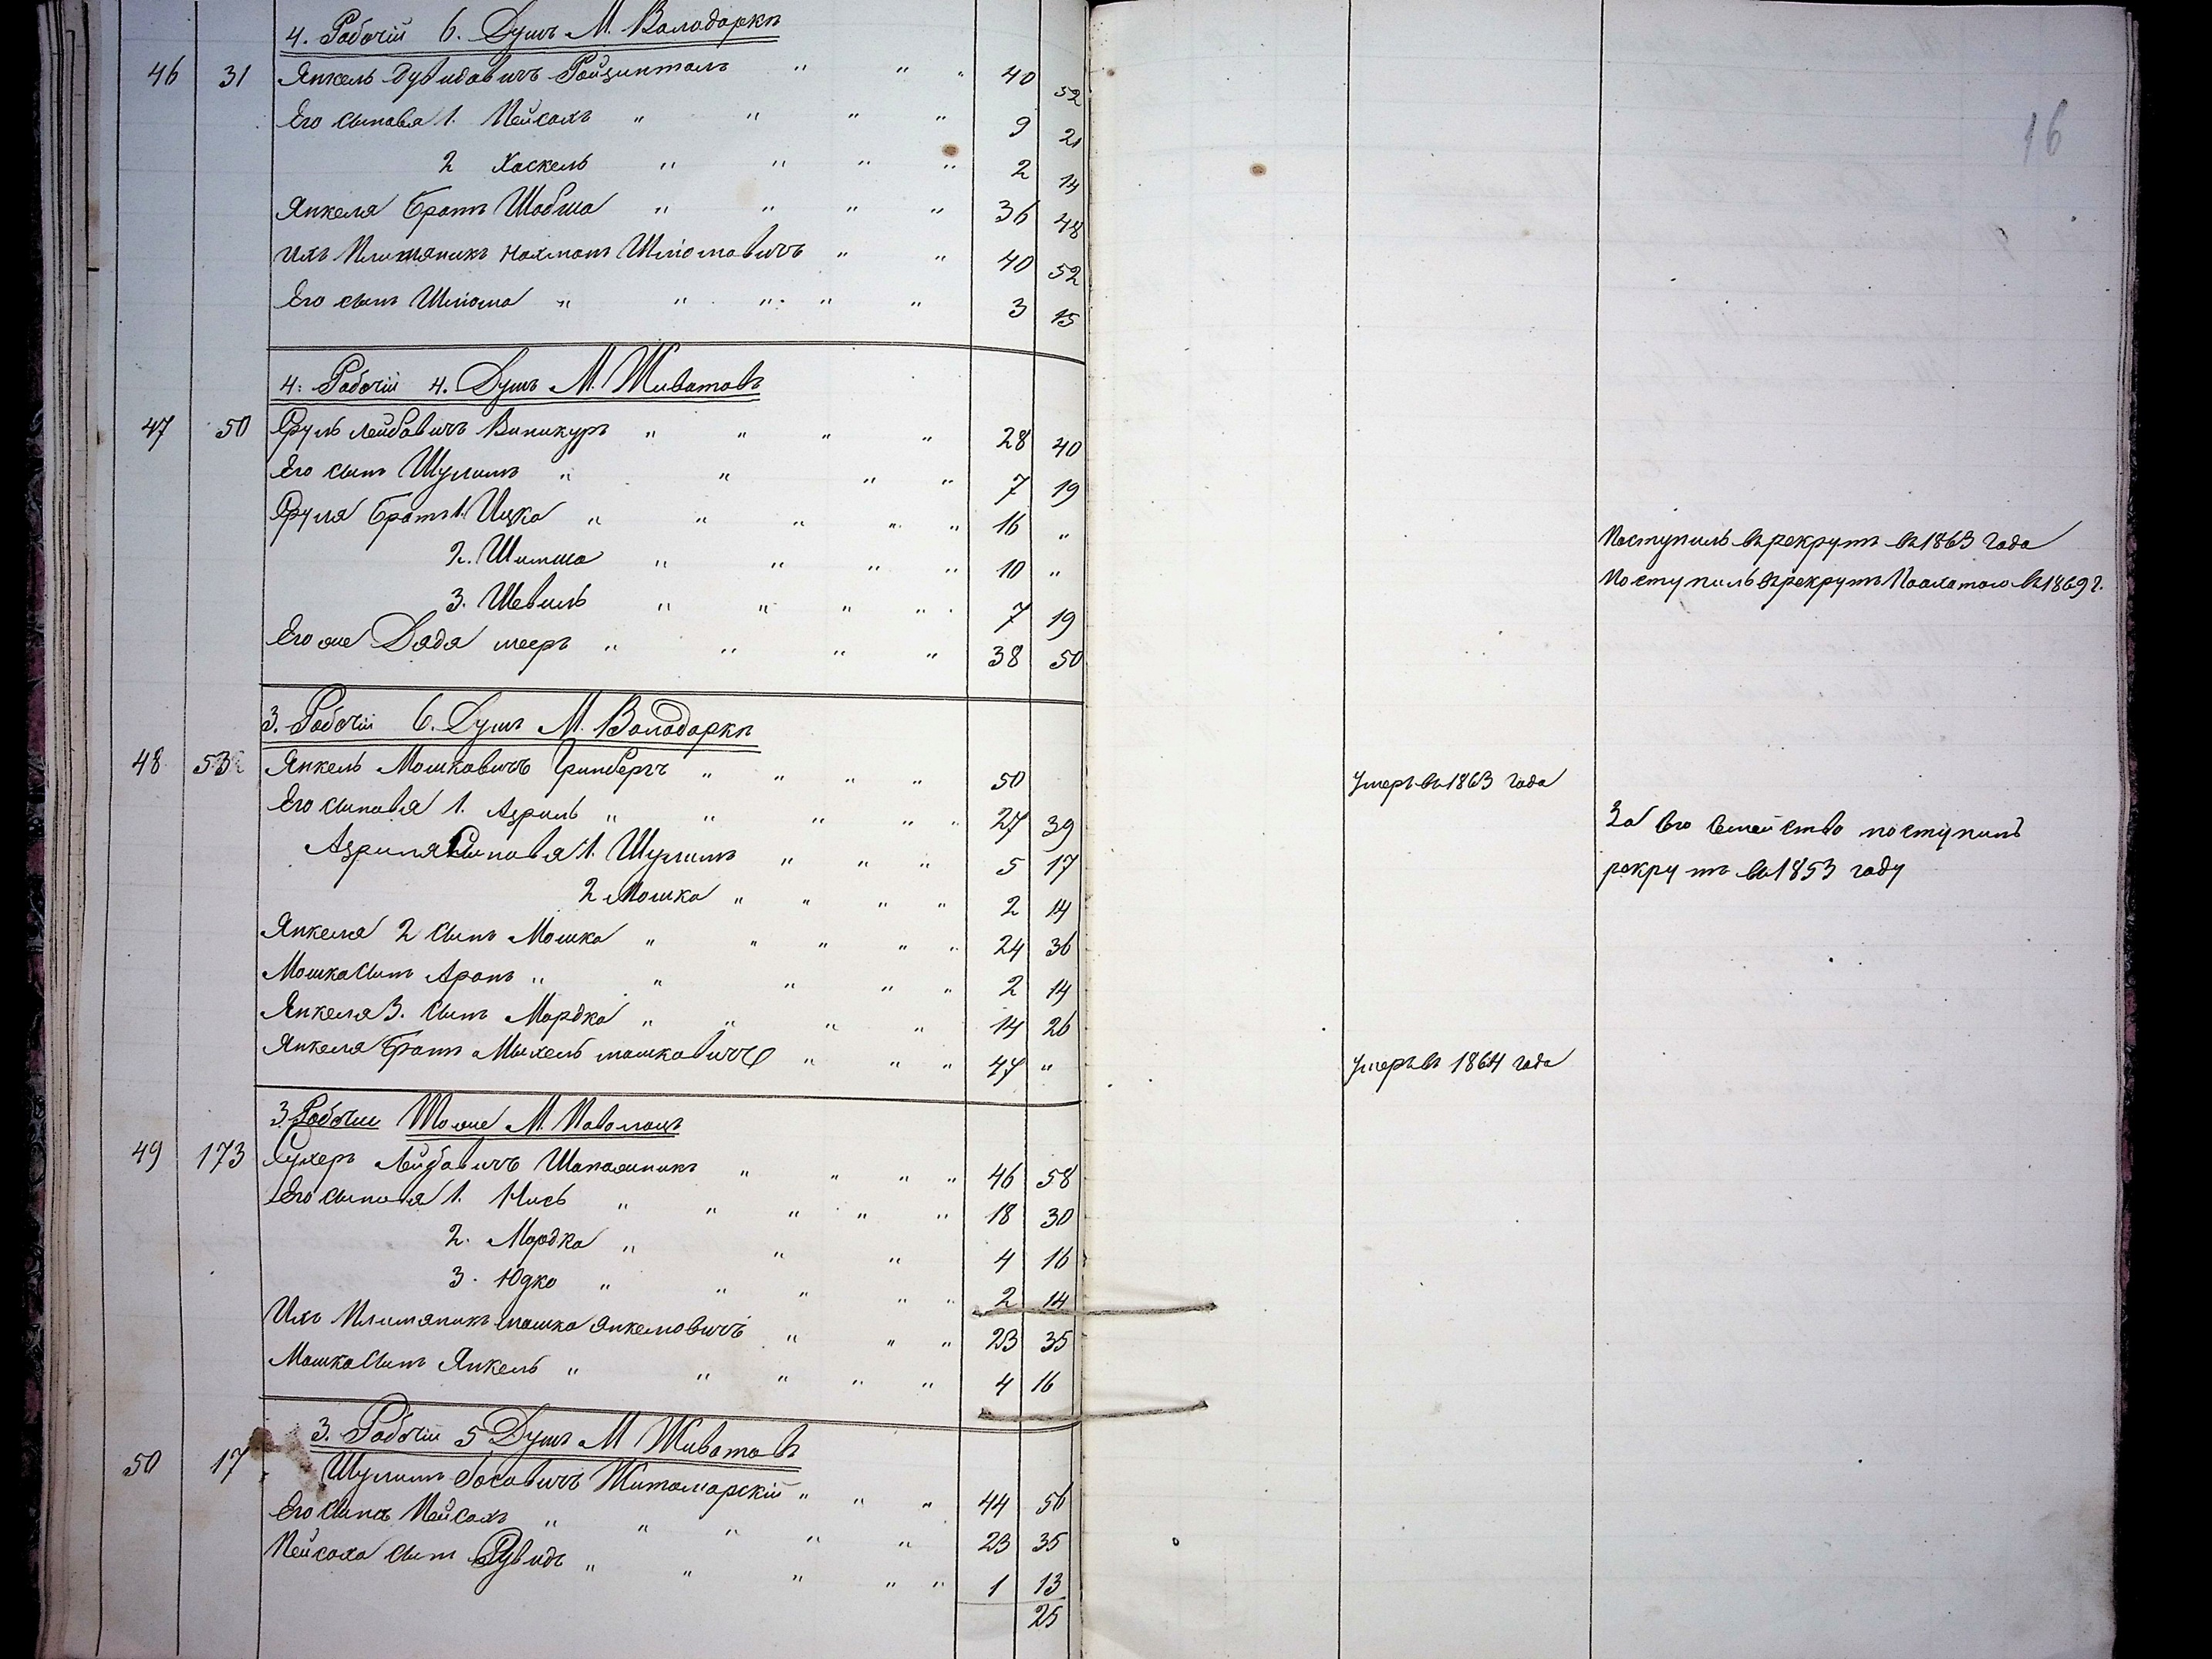 16
4. Рабочій 6. Душъ М. Володарки
46 31 Янкель Дувидовичъ Ройзинталъ " " " 40 52
Его сыновья 1. Пейсахъ " " " " 9 21
2 Хаскель " " " " 2 14
Янкеля братъ Шабша " " " " 36 48
Ихъ Племяникъ Нахманъ Шліомовичъ " " 40 52
Его сынъ Шліома " " " " " 3 15
4. Рабочій 4. Душъ М. Животовъ
47 50 Сруль Лейбовичъ Виникуръ " " " " 28 40
Его сынъ Шулимъ " " " " 7 19
Сруля братъ 1. Ицко " " " " " 16 " Поступилъ въ рекрутъ въ 1863 года
2. Шимша " " " " 10 " Поступилъ въ рекрутъ въ 1869 г.
3. Шевель " " " " " 7 19
Его же Дядя мееръ " " " " 38 50
3. Рабочій 6. Душъ М. Володарки
48 53 Янкель Мошковичъ Гринбергъ " " " " 50 умеръ въ 1863 года
Его сыновья 1. Азриль " " " " " 27 39 За его семейство поступилъ
Азриля Сыновья 1. Шулимъ " " " 5 17 рекрутъ въ 1853 году
2 Мошко " " " " 2 14
Янкеля 2 сынъ Мошко " " " " " 24 36
Мошка сынъ Аронъ " " " " " 2 14
Янкеля 3. сынъ Мордко " " " " 14 26
Янкеля братъ Михель мошковичъ " " " 47 " умеръ въ 1864 года
3 Рабочіи Тоже М. Паволочъ
49 173 Сухеръ Лейбовичъ " " " " 46 58
Его сыновья 1. Нись " " " " " 18 30
2. Мордко " " " 4 16
3. Юдко " " " " " 2 14
Ихъ Племяникъ мошко янкеловичъ " " " 23 35
Мошка сынъ Янкель " " " " " 4 16
3. Рабочіи 5 Душъ М Животовъ
50 17 Шулимъ Іосовичъ Житомирскій " " " 44 56
Его сынъ Пейсахъ " " " " " 23 35
Пейсаха сынъ Дувидъ " " " " " 1 13
25